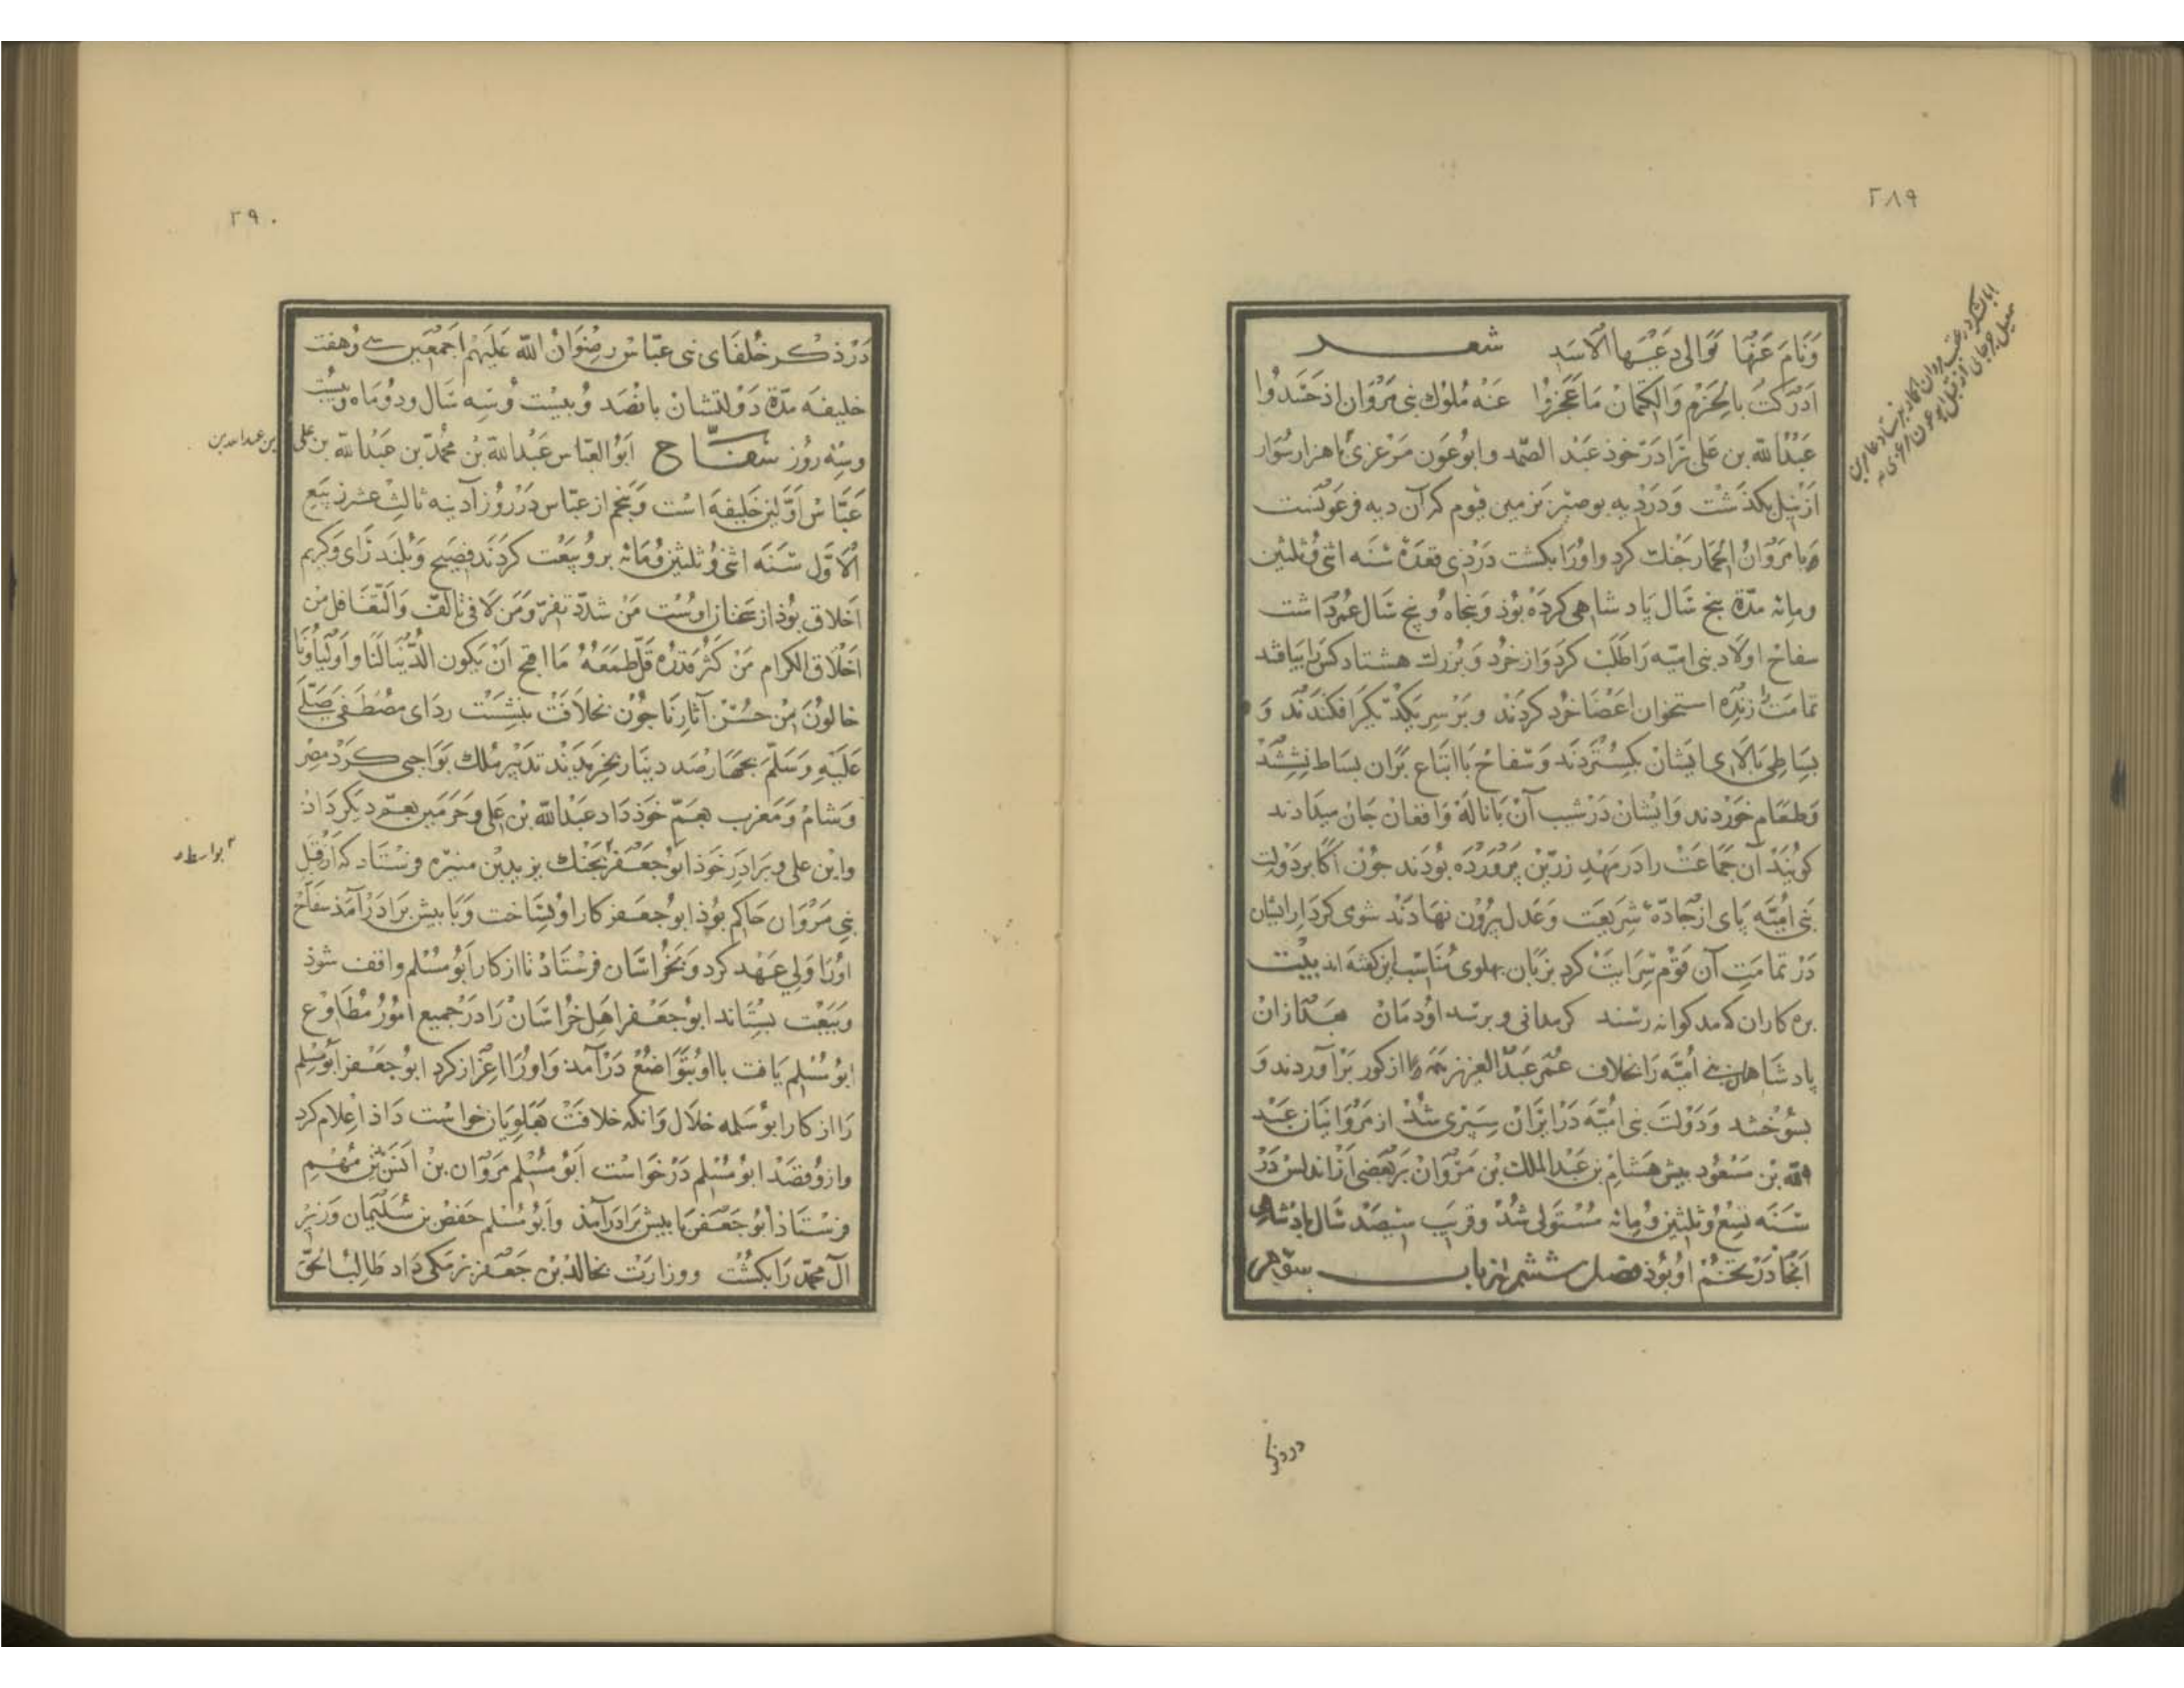 ۲۸۹
وَنَامَ عَنْهَا تَوَالی رَعْیَهَا الْاَسَدِ شعر
اَدْرَکْتُ بِالْحَزْمِ وَالْکِتْمَانِ مَا عَجَزُوْا عَنْهُ مُلُوْكُ بَنِی مَرْوَانَ اِذْ حَشَدُوا
عَبْدُاللّه بن علی بَرَادَرِ خوذ عَبْدُ الصَّمَد وابُوعَون مَرْغزی با هزار سُوار
از نیل بكذَشْت وَدَر دِیهِ بوصیْر بَزمین فیوم که آن دیه فرعَونست
وَبا مَرْوَانُ الحِمَار جَنْك کرد واورَا بکشت دَر ذی قعدَة سَنَه اثنی وَثلثین
ومِائه مدّة پنج سَال پَادشاهی کرْدَه بُوذ وَپنجَاه وُ پنج سَال عُمر دَاشت
سفاح اولاد بنی امیّه رَا طَلَب کرَدْ وَاز خُرد وَ بُزرك هشتاد کس را بیافتند
تمامَت را زِنده استخوان اعضَا خُرد کردَنْد وبَرْ سرِ یکدیکر افکندَند وَ
بِسَاطِی بَالَای ایشانْ بکسْتَردَند وَسَفاحْ بَا اتبَاع بَران بساط نِشستند
وَطعَام خورْدند وَایشان دَرْ شیب آن بَا نالَهْ وَافغان جَانْ میدادند
کویَندْ آن جَمَاعَتْ را دَر مَهْدِ زرّین پَروَرْدَه بُودَند جون اکابر دَولت
بَنی اُمیَّه پَای از جَادّهٔ شرِیعَت وَعَدل بیرُون نهادَنْد شومی کردَار ایشان
دَرْ تمامَتِ آن قَوْم سِرَایَتْ کرد بزبَان پهلوی مُنَاسبِ این کفته اند بیْت
بره کاران کامد کوانه رسْند کرمدانی و برسد اوُدمَانْ بعَدْ ازانْ
پادشَاهان بنی اُمیَّه رَا بخلاف عُمَر عَبْدُ العزیز همه را از کور بَرْآوردند وَ
بسُوخْتند وَدَوْلَت بنی اُمیَّه دَر ایرَان سِپَری شُدْ از مَرْوَانیان عَبْد
اللّه بن مَسْعُود بیش هشام بن عَبْدالملك بن مَرْوَانْ بَر بَعضی از اندلس دَرْ
سَنَه تِسْع وَثلثین وَمِائه مُسْتَولی شُدْ وقریَب سیصَد سَال پادشاهی
آنجا دَرْ تخمْ اوبُوذ فصل ششم از باب سوّم
ابا لشکر در عقب مروان حمار بفرستاد عامر بن
اسمعیل جرجانی از قبل ابو عون مرغزی
در ذکر
۲۹۰
دَرْ ذکر خُلفَای بنی عبّاس رضْوَانُ اللّه عَلَیهْم اَجمعَین سی وُهفت
خلیفه مدّة دَوْلتشان پانصَد وُبیسْت وُسِه سَال ودوُمَاه وبیسْت
وسه روُز سَفّاح اَبُو العبّاس عَبْدُ اللّه بْن محُمّد بْن عَبْدُ اللّه بن علی
عَبَّاسْ اَوَّلین خَلیفهَ اسْت وَپنجم از عبّاس دَرْ روُز آدینه ثالثْ عشر ربَیع
الاَوَّل سَنَه اثنی وُثلثین وُمائه برو بَیعَت کردَند فصِیح وَبُلند رَای وَکریم
اَخلاق بوُذ از سخنان اوسْت مَنْ شَدَّدَ نفرّ وَمَنْ لاَفی تألفّ وَالتَّغَافل من
اَخلاق الکِرام مَنْ کثُر قَدْرُه قَلَّ طَمَعُهُ مَا اقبح اَنْ یَکون الدُّنْیَا لَنَا وَاَوْلیَاؤنَا
خالوُنَ مِنْ حسْن آثارِنَا جُون بخلاَفَتْ بنشسْت ردَای مصُطَفَی صَلّی
عَلَیْهِ وَسَلّم بجهَارصَد دینَار بخریَدند تدبیْر مُلك بوَاجبی کَرد مصر
وَشامْ وَمَغرب بعَمّ خوَذ دَاد عَبْدُ اللّه بْن علی وَحَرَمَین بعَمّ دیکر دَادْ
وابن علی وبَرادَرِ خوَذ ابوُجَعفر بجَنْك یزید بْن هبیره فرسْتَاد که از قبَل
بنی مَرْوَان حَاکم بوُذ ابوُجَعفر کار او بسَاخت وَبَا بیش برَادَر آمَذ سَفَاحْ
اورَا وَلی عَهْد کرد وَبخُراسَان فرسْتَادْ تا از کار ابَوُ مُسْلم واقف شوذ
وَبَیْعَت بِسْتَاند ابوُجَعفر اهل خُراسَان رَا دَر جمیع امُوُر مُطَاوْع
ابوُ مُسْلم یَافت با او بتَواضعُ دَر آمَد وَاوُرَا اعزاز کرد ابوُجَعفر اَبوُ مُسْلم
رَا از کار ابوُسَلمه خلاّل وَآنکه خلافَتْ بعَلویَان خواسْت دَاذ اِعْلام کرد
وازو قصْد ابوُ مُسْلم دَرْ خَواسْت اَبوُ مُسْلم مَروَان بن اَنَس بن مُهْم
فرسْتاذ اَبوُجَعفر با بیش برَادَر آمَذ وَاَبوُ مُسْلم حَفص بن سُلَیمان وَزیر
آل محمّد رَا بکشْت ووزارَت بخالد بْن جَعفر بَرمَکی دَاد طَالباً لحَقّ
بن عبدالله بن
بواسطه